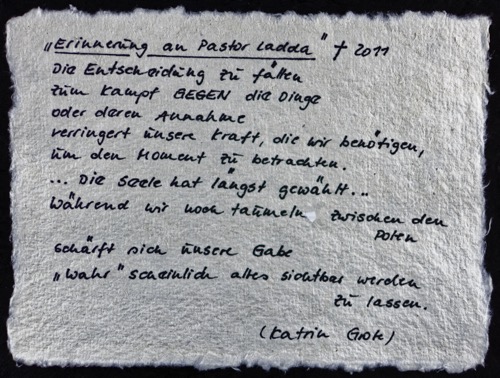 „Erinnerung an Pastor Ladda" † 2011
Die Entscheidung zu fällen
zum Kampf GEGEN die Dinge
oder deren Annahme
verringert unsere Kraft, die wir benötigen,
um den Moment zu betrachten.
... Die Seele hat längst gewählt...
Während wir noch taumeln zwischen den
Polen
schärft sich unsere Gabe
„wahr" scheinlich alles sichtbar werden
zu lassen.
(Katrin Grote)